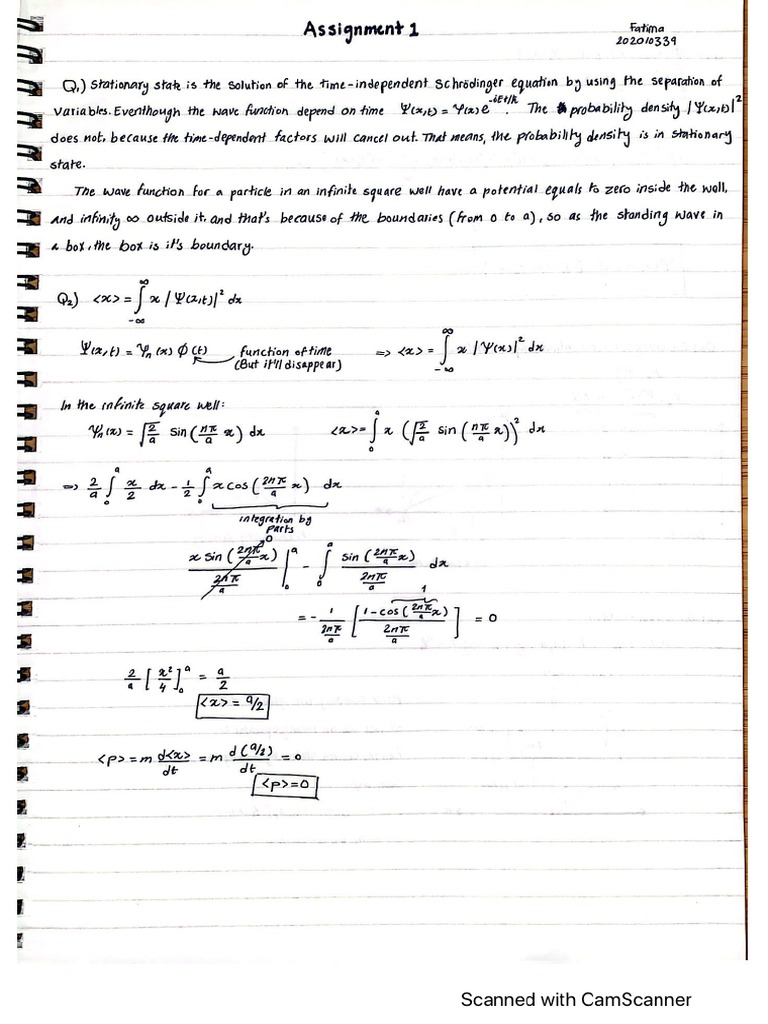 Assignment 1
Fatima
202010339
Q1) Stationary state is the solution of the time-independent Schrödinger equation by using the separation of
Variables. Eventhough the wave function depend on time Ψ(x,t) = Ψ(x) e^{-iEt/ħ}. The probability density |Ψ(x,t)|²
does not, because the time-dependent factors will cancel out. That means, the probability density is in stationary
state.
The wave function for a particle in an infinite square well have a potential equals to zero inside the well,
and infinity ∞ outside it, and that's because of the boundaries (from 0 to a), so as the standing wave in
a box, the box is it's boundary.
Q2) <x> = ∫_{-∞}^{∞} x |Ψ(x,t)|² dx
Ψ(x,t) = Ψn(x) Φ(t) function of time (But it'll disappear) => <x> = ∫_{-∞}^{∞} x |Ψ(x)|² dx
In the infinite square well:
Ψn(x) = √(2/a) sin(nπ/a x) dx <x> = ∫_0^a x (√(2/a) sin(nπ/a x))² dx
=> 2/a ∫_0^a x/2 dx - 1/2 ∫_0^a x cos(2nπ/a x) dx
integration by
parts
x sin(2nπ/a x) / (2nπ/a) |_0^a - ∫_0^a sin(2nπ/a x) / (2nπ/a) dx
0
= - 1/(2nπ/a) [ (1 - cos(2nπ/a x)) / (2nπ/a) ] = 0
1
2/a [x²/4]_0^a = a/2
<x> = a/2
<p> = m d<x>/dt = m d(a/2)/dt = 0
<p> = 0
Scanned with CamScanner